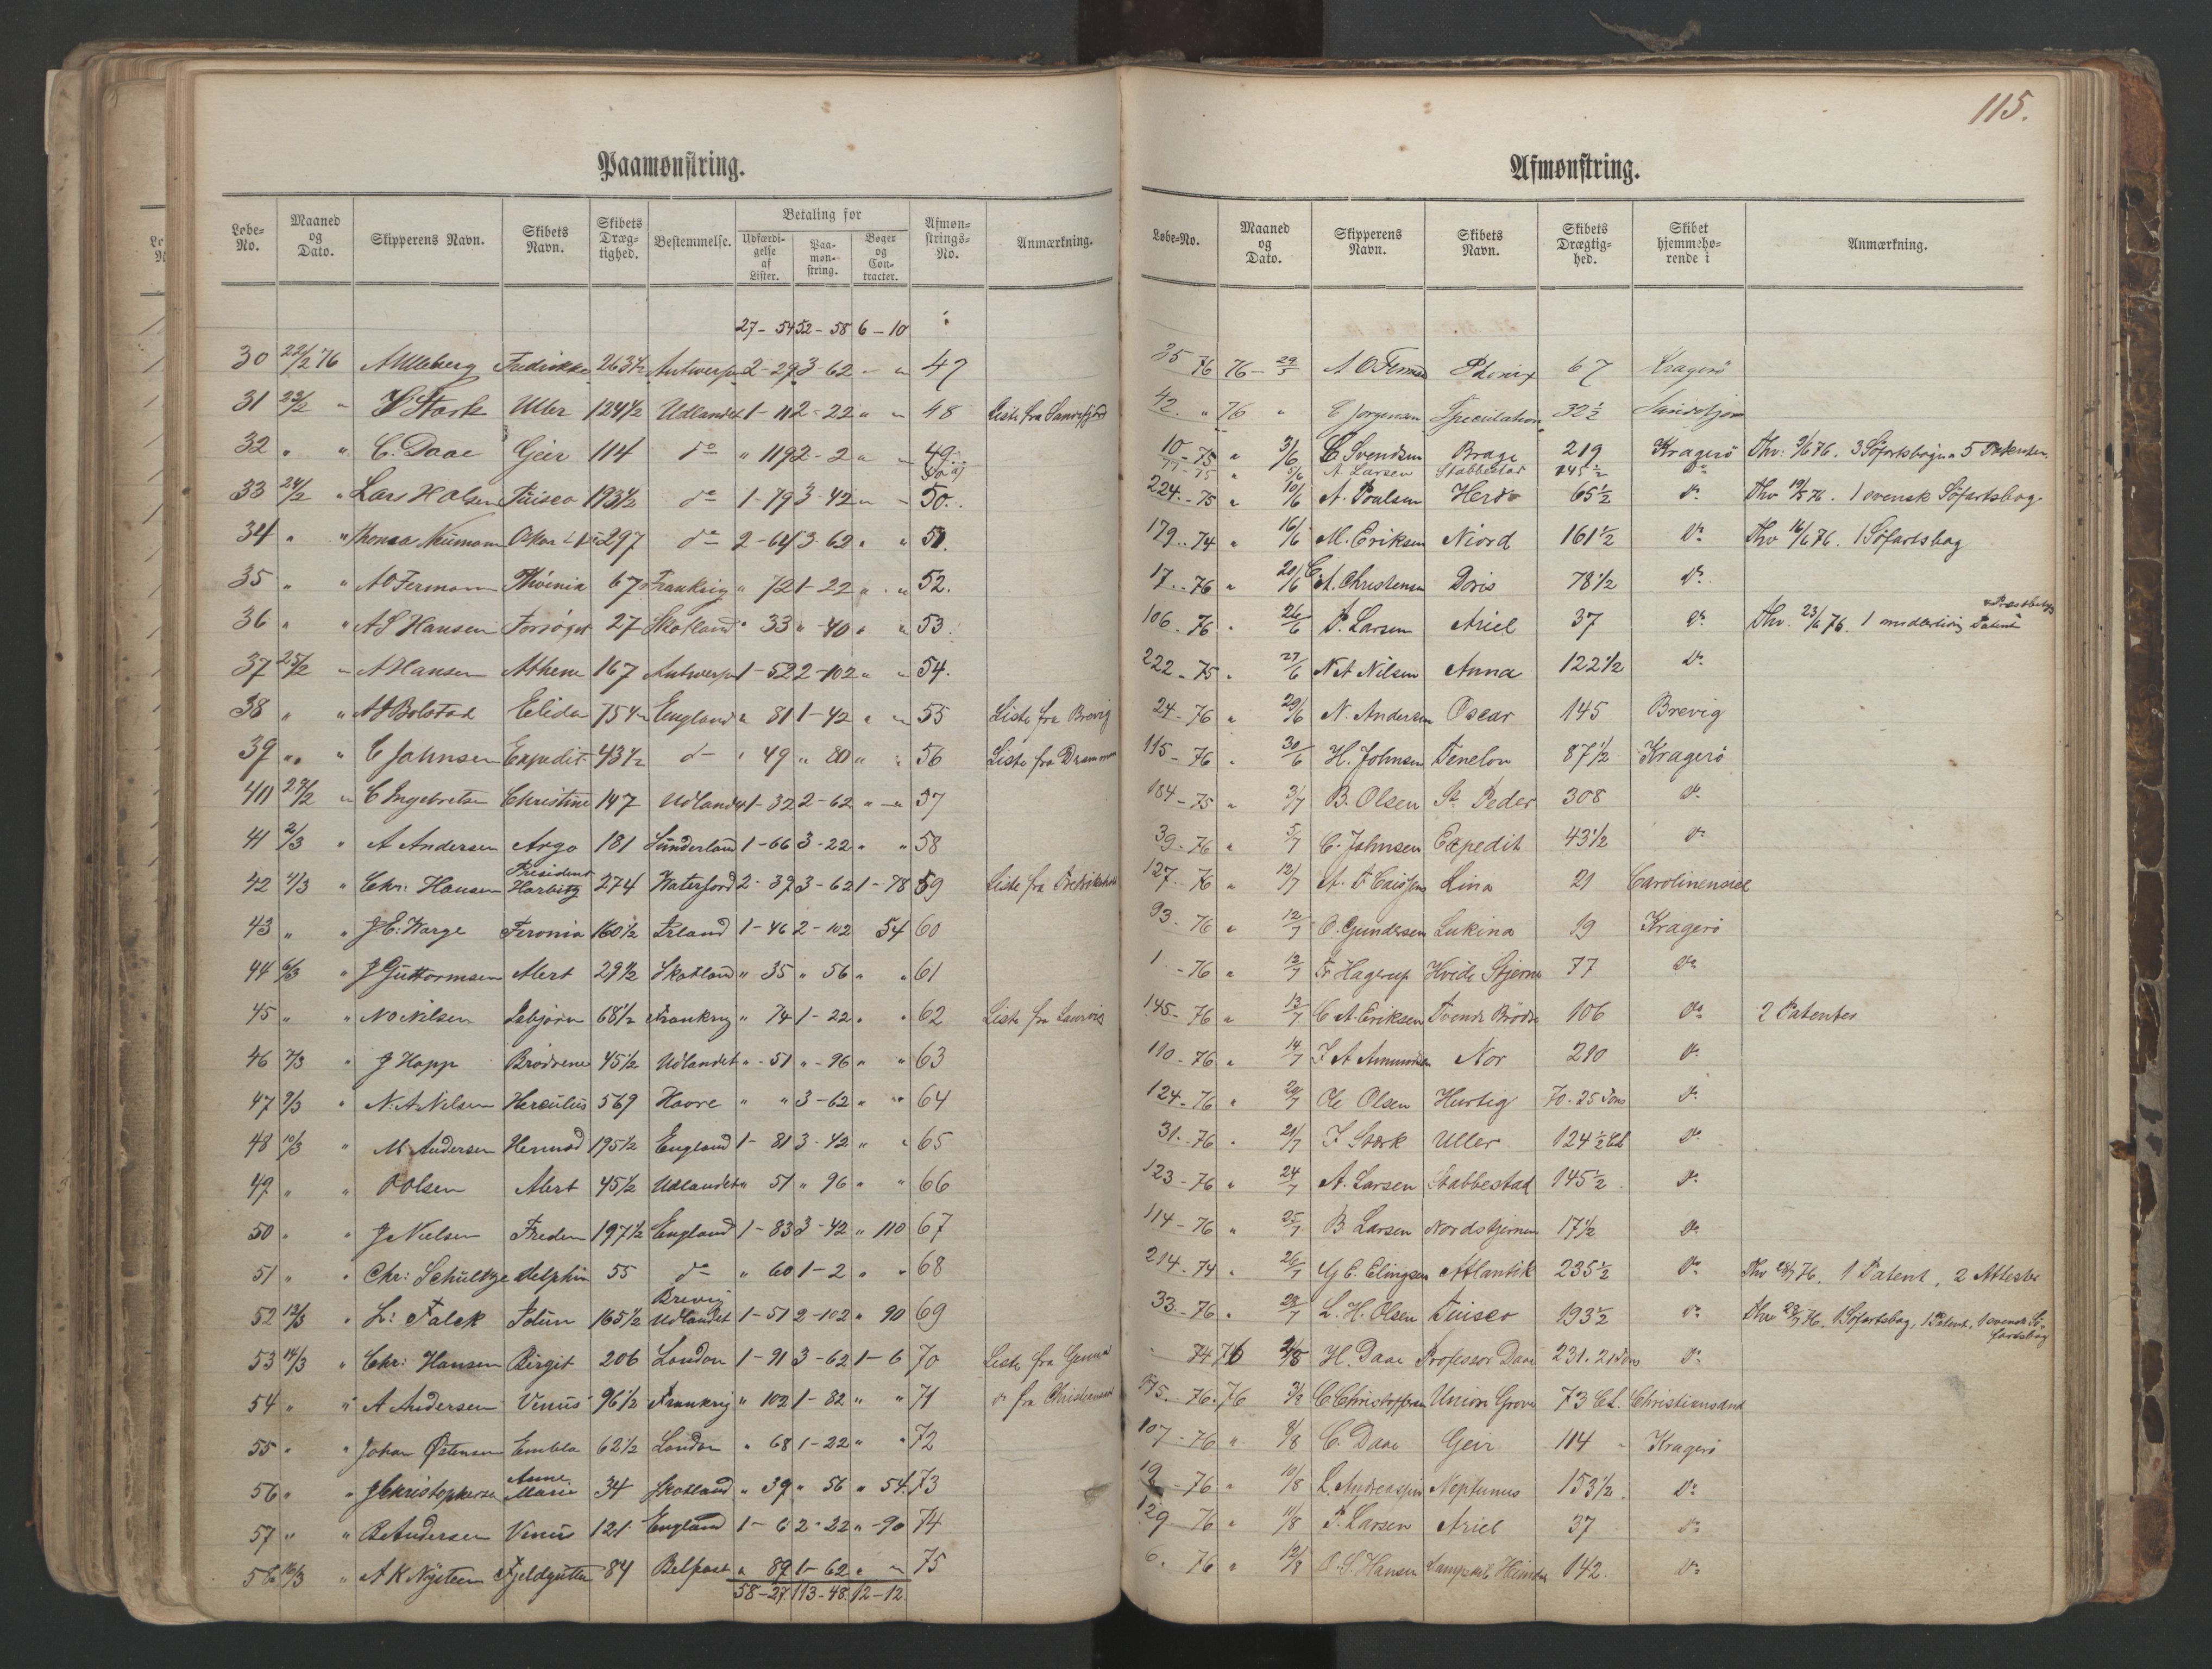 115.
Paamønstring.
Løbe-No. Maaned og Dato. Skipperens Navn. Skibets Navn. Skibets Dræg-tighed. Bestemmelse. Betaling for Udfærdi-gelse af Lister. Paa-møn-string. Bøger og Con-tracter. Afmøn-strings-No. Anmærkning.
27-54 52-58 6-10
30 22/2 76 A Ulleberg Fredrikke 263½ Antwerp 2-29 3-62 " " 47
31 23/2 " Stork Uller 124½ Udlandet 1-11 2-22 " " 48 Liste fra Sandefjord
32 " " C. Daae Geir 114 do " 119 2-2 " " 49.
33 24/2 " Lars H Olsen Tuisco 193½ do 1-79 3-42 " " 50.
34 " " Neumann 297 do 2-64 3-62 " " 51.
35 " " A O Ferman 67 Frankrig " 72 1-22 " " 52.
36 " " A S Hansen Forsøget 27 Skotland " 33 " 40 " " 53.
37 25/2 " A Hansen Athene 167 Antwerp 1-52 2-102 " " 54.
38 " " Bolstad Elida 75½ England " 81 1-42 " " 55 Liste fra Brevig
39 " " C Johnsen Expedit 43½ do " 49 " 80 " " 56 Liste fra Drammen
40 27/2 " C Ingebretsen Christine 147 Udlandet 1-32 2-62 " " 57
41 2/3 " A Andersen Argo 181 Sunderland 1-66 3-22 " " 58
42 4/3 " Chr: Hansen President Harbitz 274 Waterford 2-39 3-62 1-78 59 Liste fra
43 " " Feronia 160½ Irland 1-46 2-102 54 60
44 6/3 " J Guttormsen Alert 29½ Skotland " 35 " 56 " " 61
45 " " N O Nilsen Isbjørn 68½ Frankrig " 74 1-22 " " 62 Liste fra Laurvig
46 7/3 " J Hopp Brødrene 45½ Udlandet " 51 " 96 " " 63
47 9/3 " N. A. Nilsen Herculus 569 Havre " " 3-62 " " 64
48 10/3 " M Andersen Hermod 195½ England 1-81 3-42 " " 65
49 " " O Olsen Alert 45½ Udlandet " 51 " 96 " " 66
50 " " J Nielsen Freden 197½ England 1-83 3-42 " 110 67
51 " " Chr: Schultze Delphin 55 do " 60 1-2 " " 68
52 13/3 " L: Falck Idun 165½ Brevig Udlandet 1-51 2-102 " 90 69
53 14/3 " Chr: Hansen Birgit 206 London 1-91 3-62 1-6 70 Liste fra
54 " " A Andersen Venus 96½ Frankrig " 102 1-82 " " 71 do fra Christiansand
55 " " Johan Østensen Embla 62½ London " 68 1-22 " " 72
56 " " J Christophersen Anne Marie 34 Skotland " 39 " 56 " 54 73
57 " " B Andersen Venus 121 England 1-6 2-22 " 90 74
58 16/3 " A K Nysteen Fjeldgutten 84 Belfast " 89 1-62 " " 75
58-27 113-48 12-12
Afmønstring.
Løbe-No. Maaned og Dato. Skipperens Navn. Skibets Navn. Skibets Drægtig-hed. Skibet hjemmehø-rende i Anmærkning.
35 76 76 - 29/5 A O Ferman Phønix 67 Kragerø
42. " 76 " E Jørgensen Speculation 32½
10-75 " 3/6 C Svendsen Brage 219 Kragerø Thv: 3/6 76. 3 Søfartsbøger 5 Patenter
77-75 " 5/6 A Larsen Stabbestad 145½ do
224-75 " 10/6 A. Poulsen Herdø 65½ do Thv 19/5 76. 1 svensk Søfartsbog
179-74 " 16/6 M. Eriksen Niord 161½ do Thv 16/6 76. 1 Søfartsbog
17-76 " 20/6 C A. Christensen Doris 78½ do
106-76 " 26/6 P. Larsen Ariel 37 do Thv. 23/6 76. 1 midlertidig Patent
222-75 " 27/6 N A Nilsen Anna 122½ do
24-76 " 29/6 N. Andersen Oscar 145 Brevig
115-76 " 30/6 H. Johnsen Fenelon 87½ Kragerø
184-75 " 3/7 B. Olsen St Peder 308 do
39-76 " 5/7 C. Johnsen Expedit 43½ do
127-76 " 12/7 A. F Lina 21 Carolinensiel
93-76 " 12/7 O. Gundersen Lukina 19 Kragerø
1-76 " 12/7 Fr Hagerup Hvide Stjerne 77 do
145-76 " 13/7 C A. Eriksen Tvende Brødre 106 do 2 Patenter
110-76 " 14/7 J A Amundsen Nor 210 do
124-76 " 20/7 Ole Olsen Hurtig 70-25 Tons do
31-76 " 21/7 J Stork Uller 124½ Cl do
123-76 " 24/7 A. Larsen Stabbestad 145½ do
114-76 " 25/7 B Larsen Nordstjernen 17½ do
214-74 " 26/7 G E. Elingsen Atlantik 235½ do Thv 28/7 76, 1 Patent, 2 Attester
33-76 " 28/7 L. H. Olsen Tuisco 193½ do Thv 28/7 76, 1 Søfartsbog, 1 Patent, 1 svensk Sø-fartsbog
74 76 2/8 H. Daae Professor Daae 231. 21 Tons do
76. 76 3/8 C. Christoffersen Union Grove 73 Cl. Christiansand
107-76 " 8/8 C. Daae Geir 114 Kragerø
19-76 " 10/8 L. Andreassen Neptunus 153½ do
129-76 " 11/8 P. Larsen Ariel 37 do
6-76 " 12/8 O. S. Hansen 142 do